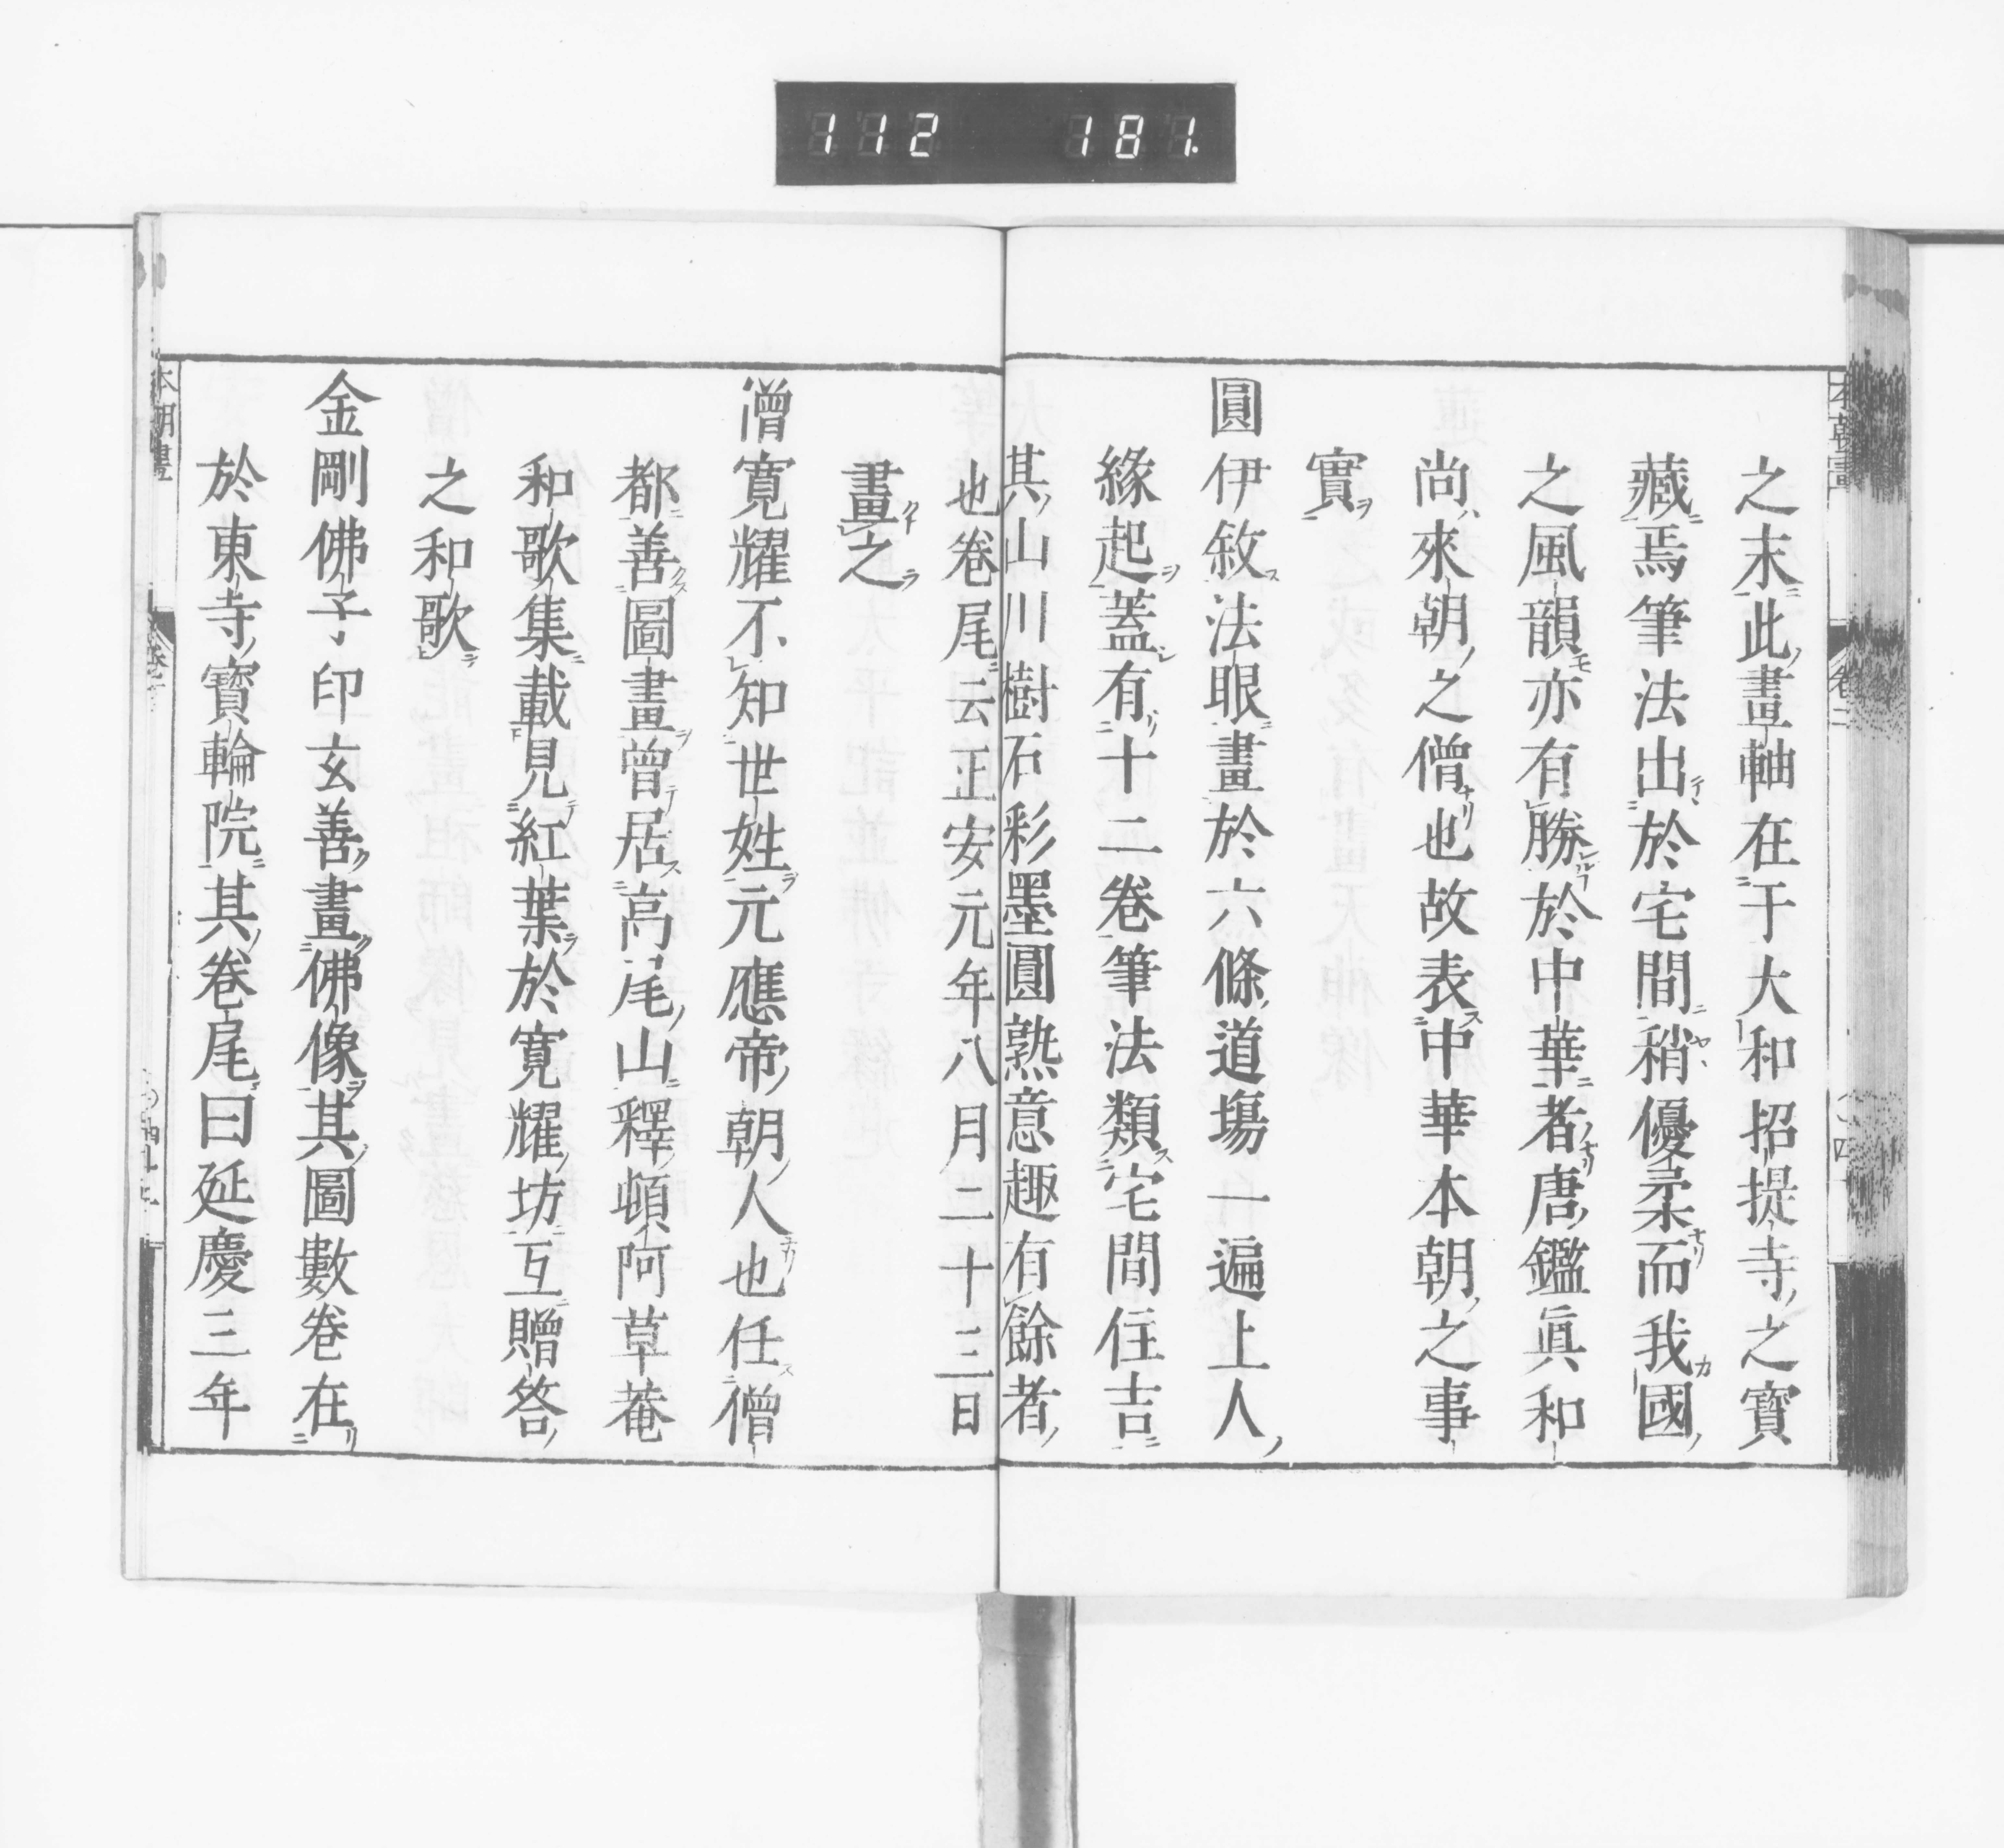 112 181.
之末此畫軸在于大和招提寺之寶
藏焉筆法出於宅間稍優柔而我國
之風韻亦有勝於中華者唐鑑眞和
尚來朝之僧也故表中華本朝之事
實
圓伊敘法眼畫於六條道塲一遍上人
緣起蓋有十二卷筆法類宅間住吉
其山川樹石彩墨圓熟意趣有餘者
也卷尾云正安元年八月二十三日
畫之
僧寬耀不知世姓元應帝朝人也任僧
都善圖畫曾居高尾山釋頓阿草菴
和歌集載見紅葉於寬耀坊互贈答
之和歌
金剛佛子印玄善畫佛像其圖數卷在
於東寺寶輪院其卷尾曰延慶三年